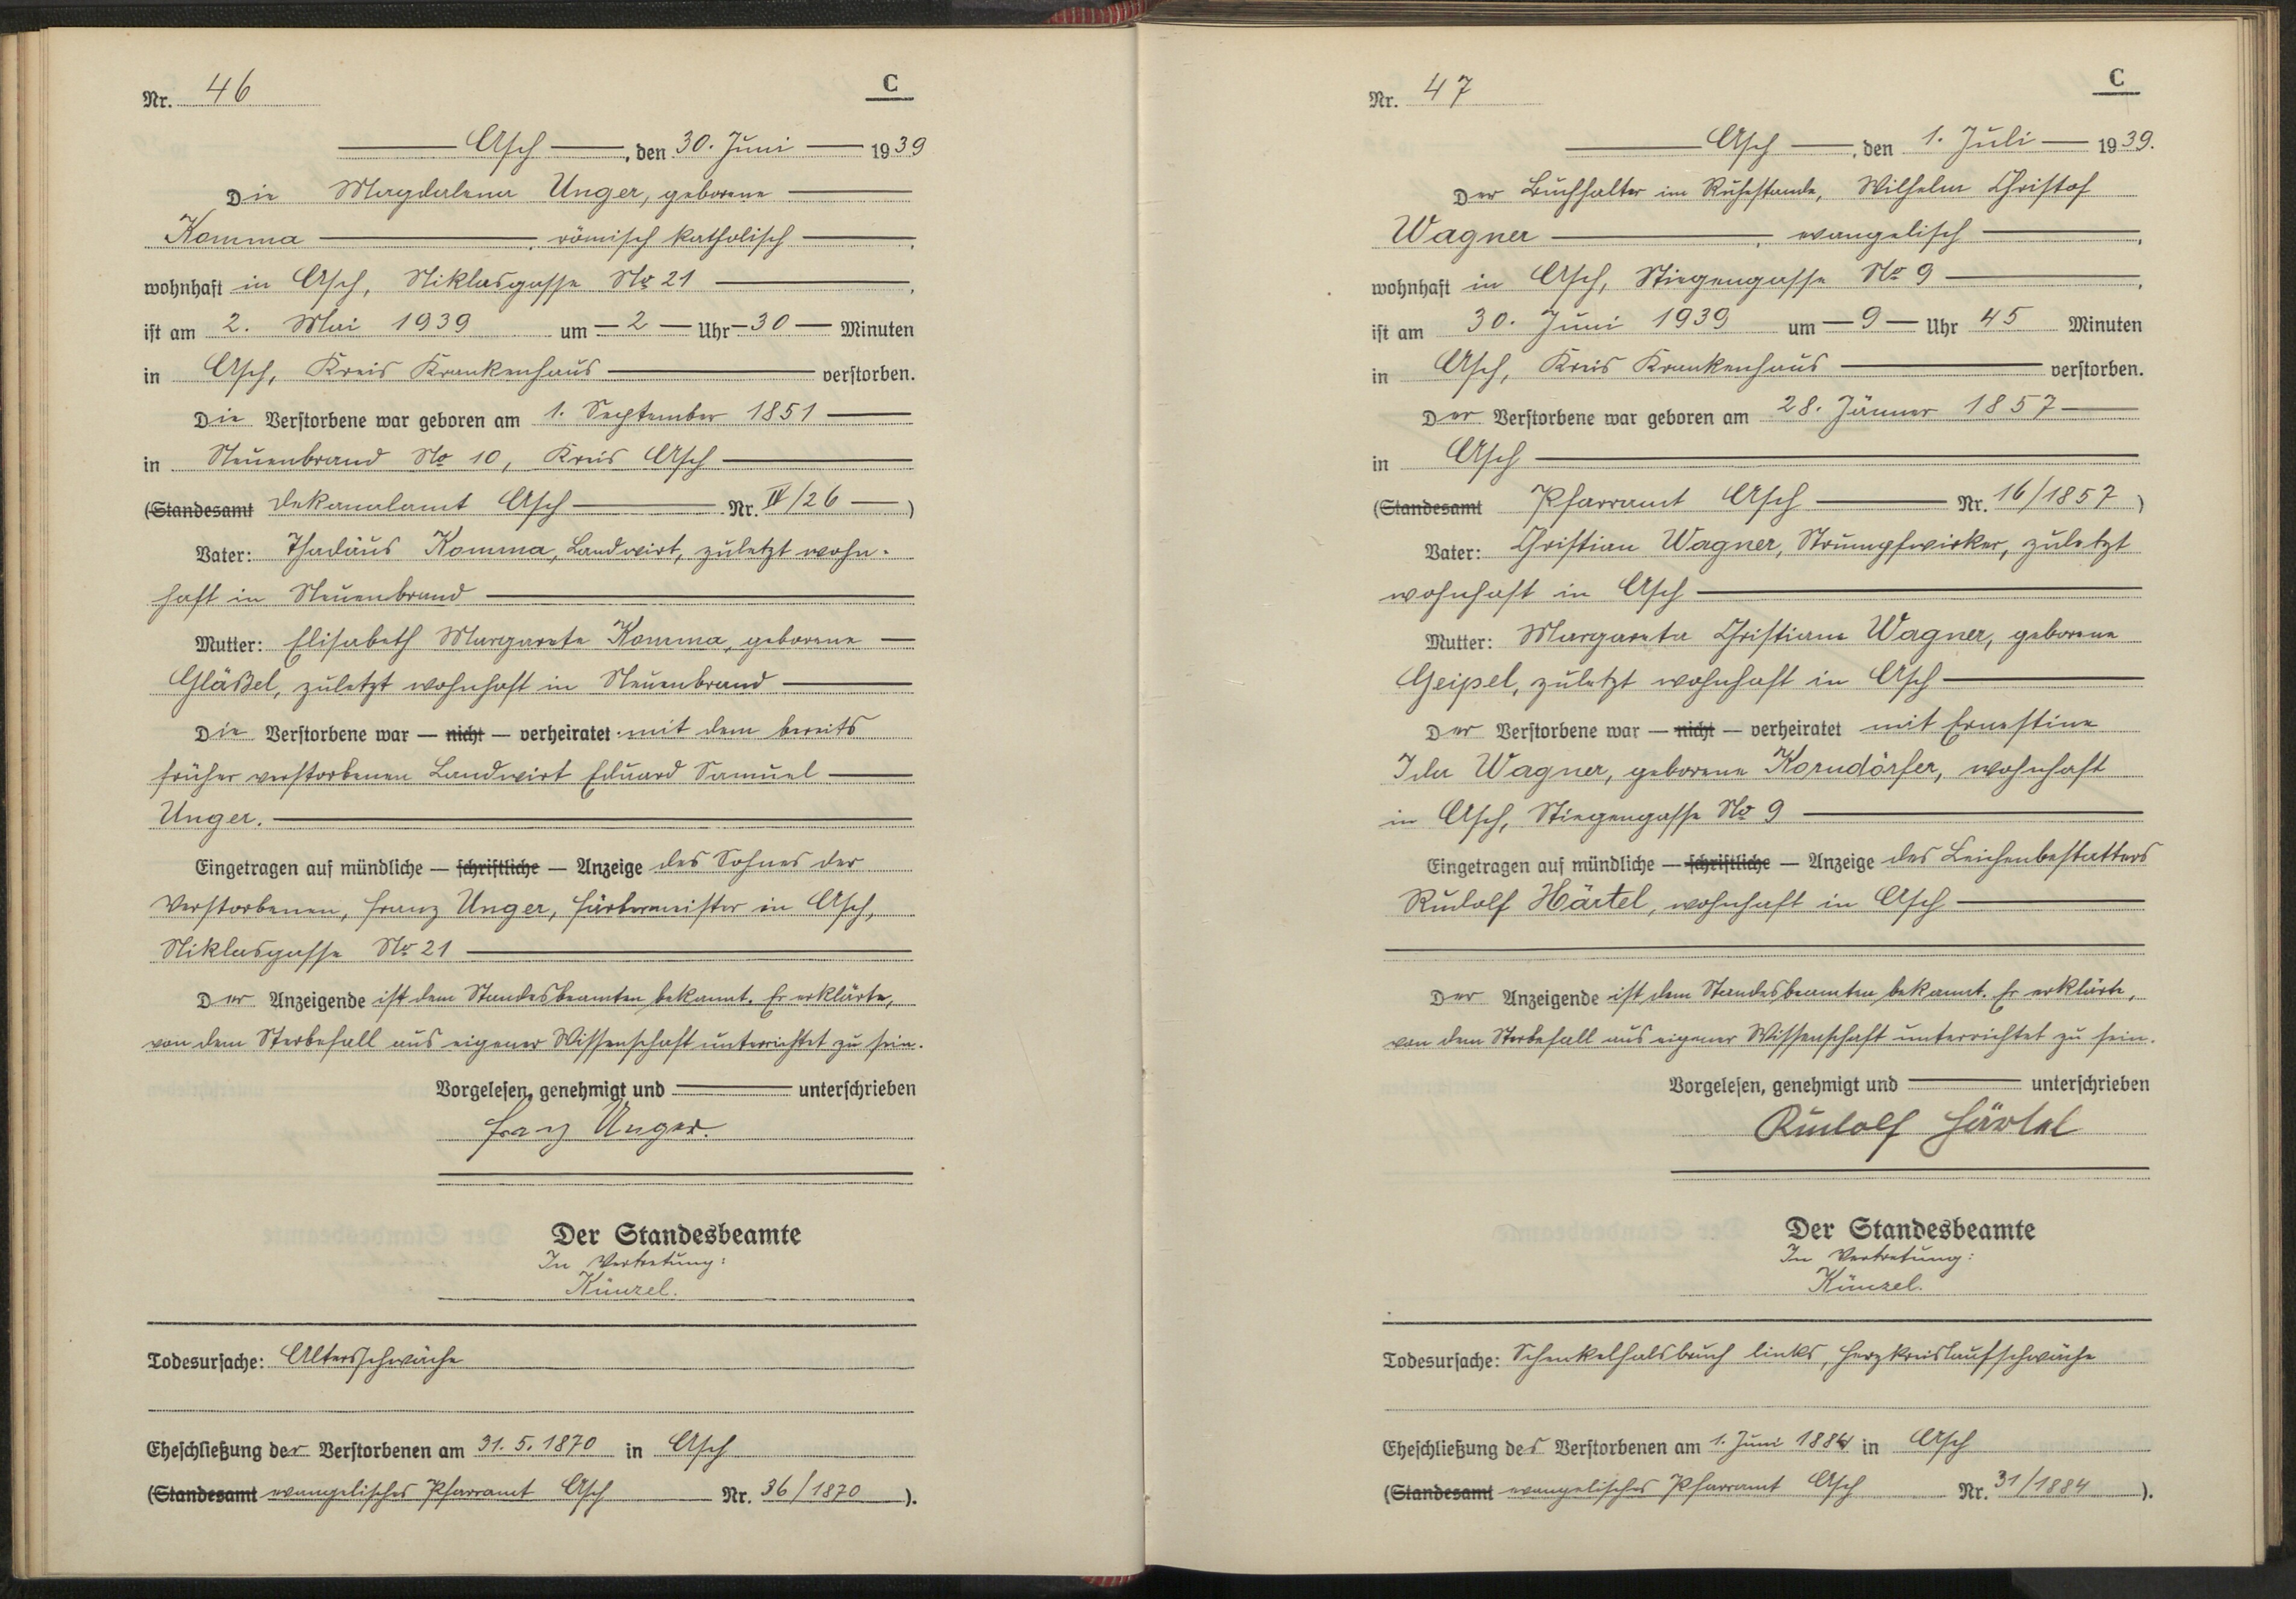 Nr. 46
C
Asch, den 30. Juni 1939
Die Magdalena Unger, geborene
Komma, römisch katholisch,
wohnhaft in Asch, Niklasgasse No 21,
ist am 2. Mai 1939 um 2 Uhr 30 Minuten
in Asch, Kreis Krankenhaus verstorben.
Die Verstorbene war geboren am 1. September 1851
in Neuenbrand No 10, Kreis Asch
(Standesamt Dekanalamt Asch Nr. IV/26)
Vater: Thadäus Komma, Landwirt, zuletzt wohn-
haft in Neuenbrand
Mutter: Elisabeth Margarete Komma, geborene
Gläßel, zuletzt wohnhaft in Neuenbrand
Die Verstorbene war — nicht — verheiratet mit dem bereits
früher verstorbenen Landwirt Eduard Samuel
Unger.
Eingetragen auf mündliche — schriftliche — Anzeige des Sohnes der
Verstorbenen, Franz Unger, Färbermeister in Asch,
Niklasgasse No 21
Der Anzeigende ist dem Standesbeamten bekannt. Er erklärte,
von dem Sterbefall aus eigener Wissenschaft unterrichtet zu sein.
Vorgelesen, genehmigt und unterschrieben
Franz Unger.
Der Standesbeamte
In Vertretung:
Künzel.
Todesursache: Altersschwäche
Eheschließung der Verstorbenen am 31.5.1870 in Asch
(Standesamt evangelisches Pfarramt Asch Nr. 36/1870).
Nr. 47
C
Asch, den 1. Juli 1939.
Der Buchhalter im Ruhestande, Wilhelm Christof
Wagner, evangelisch,
wohnhaft in Asch, Stiegengasse No 9,
ist am 30. Juni 1939 um 9 Uhr 45 Minuten
in Asch, Kreis Krankenhaus verstorben.
Der Verstorbene war geboren am 28. Jänner 1857
in Asch
(Standesamt Pfarramt Asch Nr. 16/1857)
Vater: Christian Wagner, Strumpfwirker, zuletzt
wohnhaft in Asch
Mutter: Margareta Christiane Wagner, geborene
Geipel, zuletzt wohnhaft in Asch
Der Verstorbene war — nicht — verheiratet mit Ernestine
Ida Wagner, geborene Korndörfer, wohnhaft
in Asch, Stiegengasse No 9
Eingetragen auf mündliche — schriftliche — Anzeige des Leichenbestatters
Rudolf Härtel, wohnhaft in Asch
Der Anzeigende ist dem Standesbeamten bekannt. Er erklärte,
von dem Sterbefall aus eigener Wissenschaft unterrichtet zu sein.
Vorgelesen, genehmigt und unterschrieben
Rudolf Härtel
Der Standesbeamte
In Vertretung:
Künzel.
Todesursache: Schenkelhalsbruch links, Herzkreislaufschwäche
Eheschließung des Verstorbenen am 1. Juni 1884 in Asch
(Standesamt evangelisches Pfarramt Asch Nr. 31/1884).